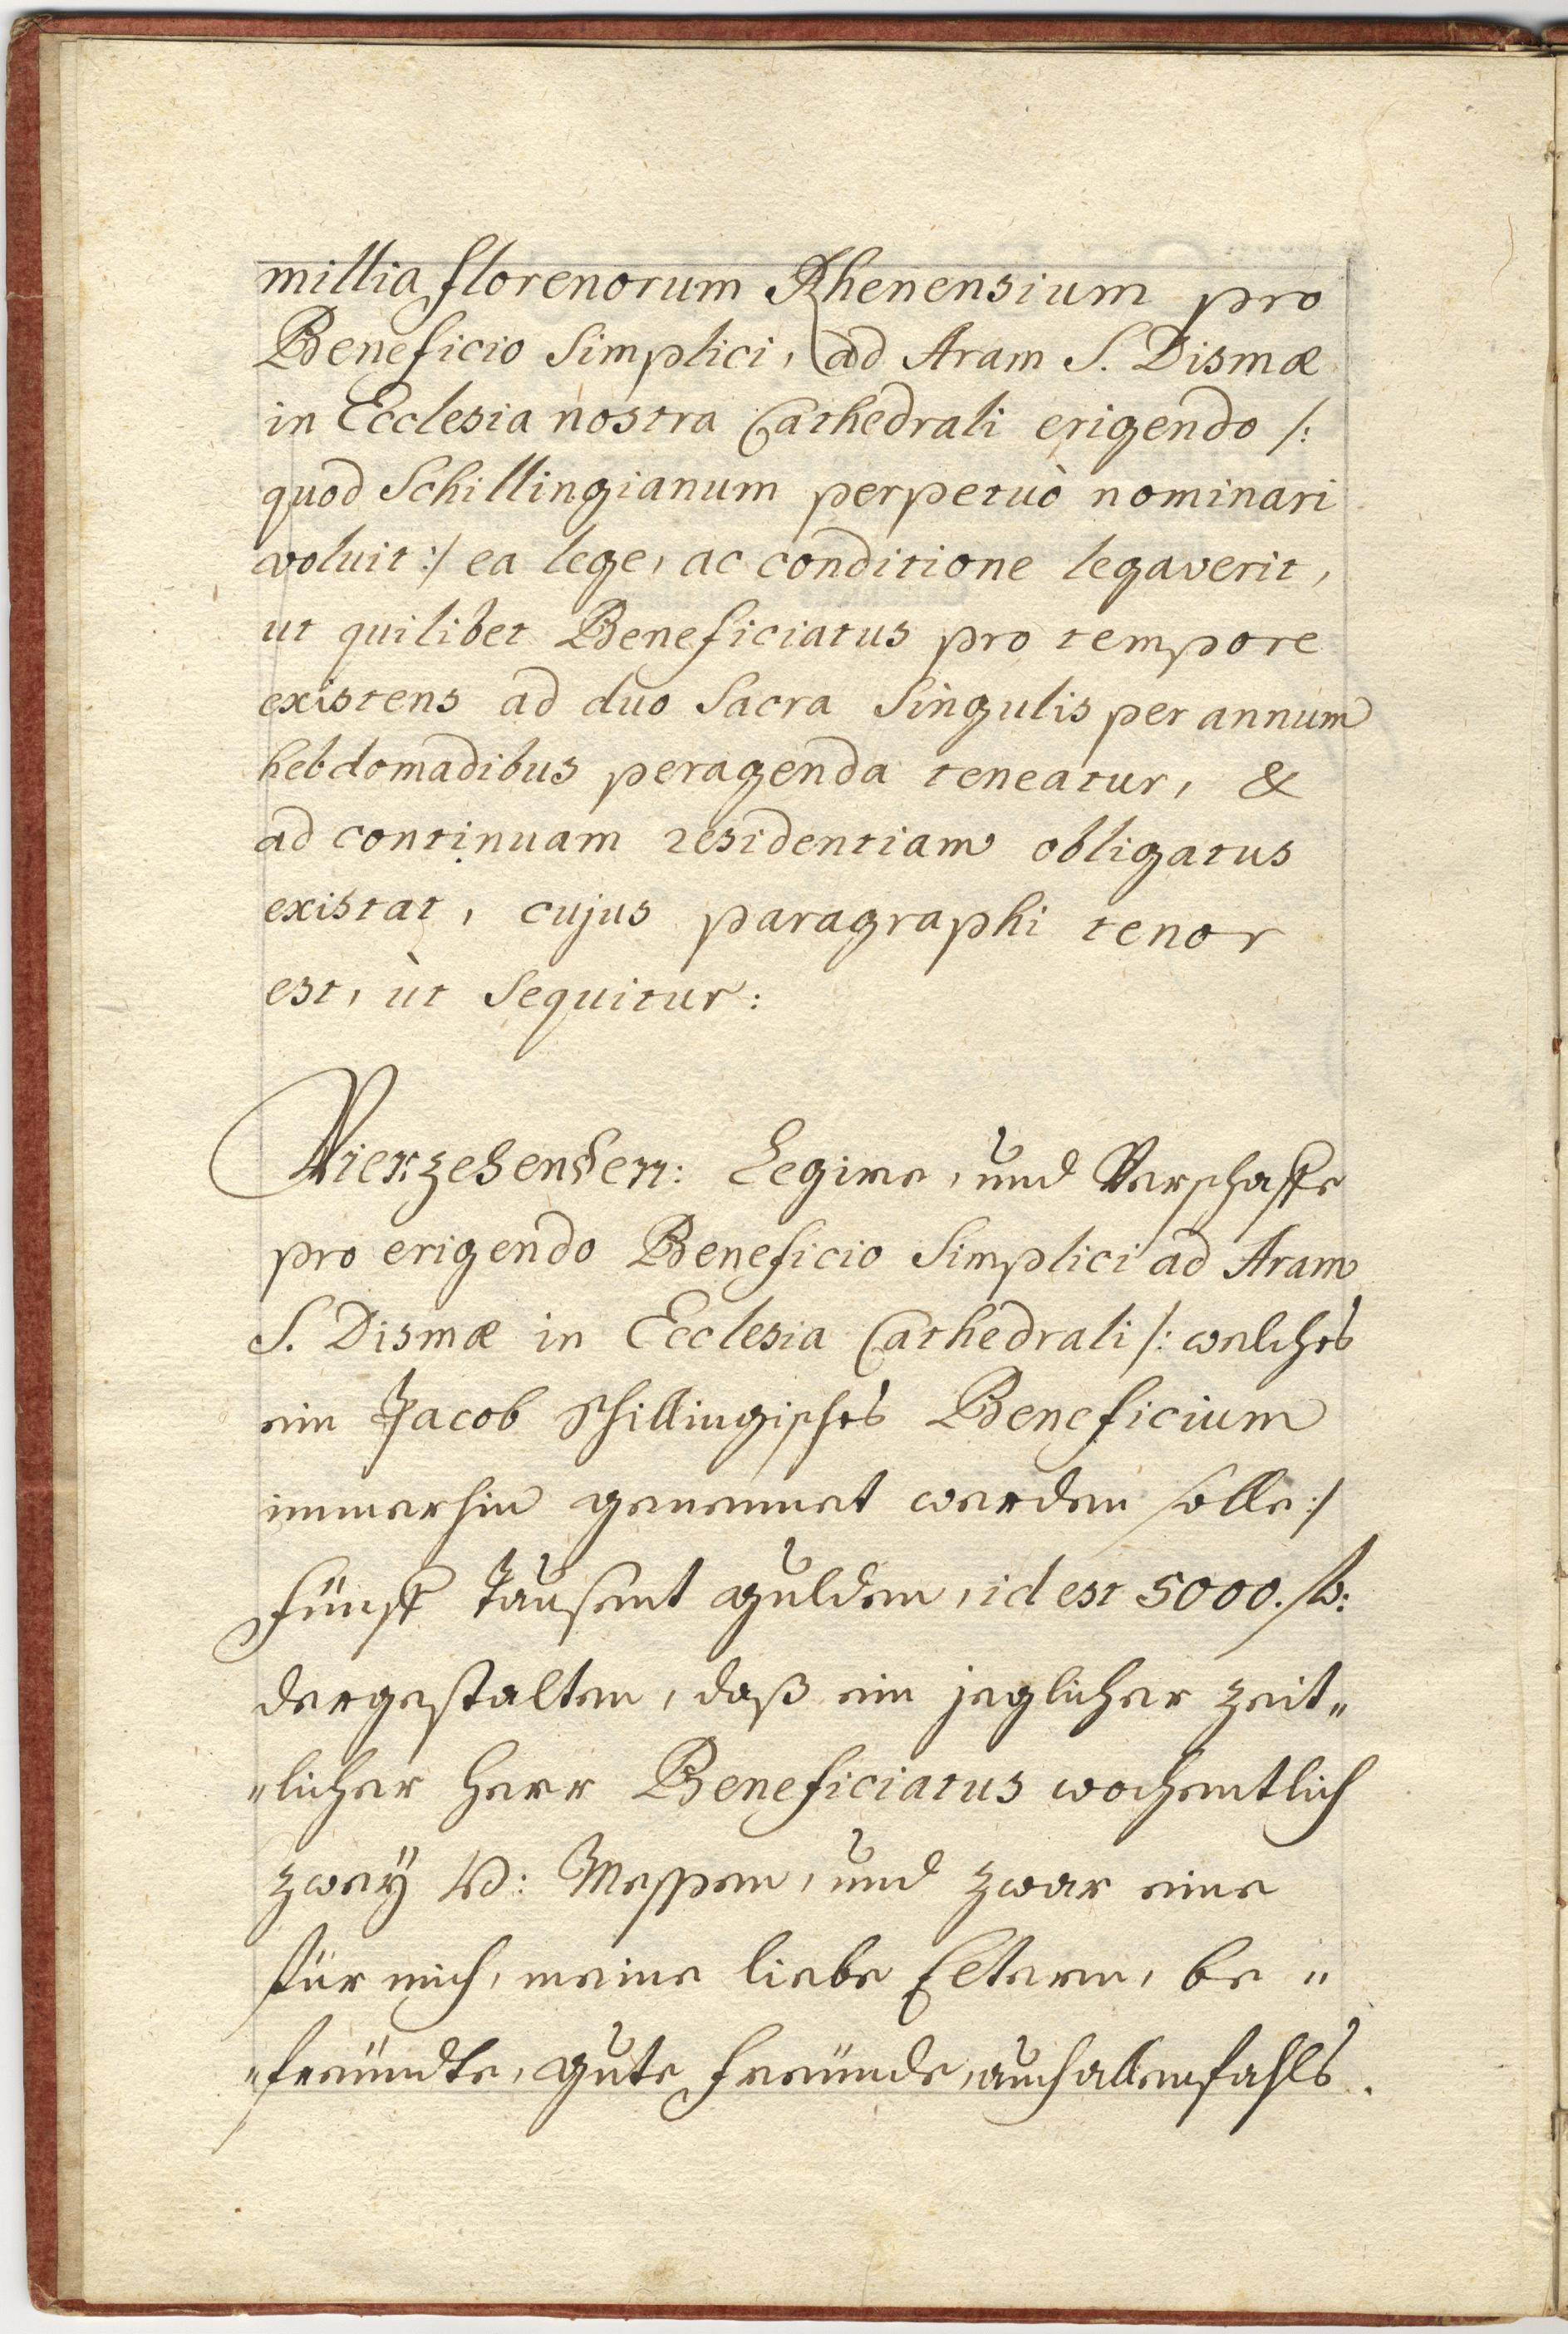 millia florenorum Rhenensium pro
Beneficio Simplici, ad Aram S. Dismæ
in Ecclesia nostra Cathedrali erigendo /:
quod Schillingianum perpetuò nominari
voluit :/ ea lege, ac conditione legaverit,
ut quilibet Beneficiatus pro tempore
existens ad duo Sacra Singulis per annum
hebdomadibus peragenda teneatur, &
ad continuam residentiam obligatus
existat, cujus paragraphi tenor
est, ùt Sequitur:
Vierzehenden: Legire, und Verschaffe
pro erigendo Beneficio Simplici ad Aram
S. Dismæ in Ecclesia Cathedrali /: welches
ein Jacob Schillingisches Beneficium
immerhin genennet werden solle :/
Fünff Tausent gulden, id est 5000. fl:
dergestalten, daß ein jeglicher zeit„
„licher Herr Beneficiatus wochentlich
zweÿ H: Messen, und zwar eine
für mich, meine liebe Eltern, be„
„freündte, gute Freünde, auch allenfahls